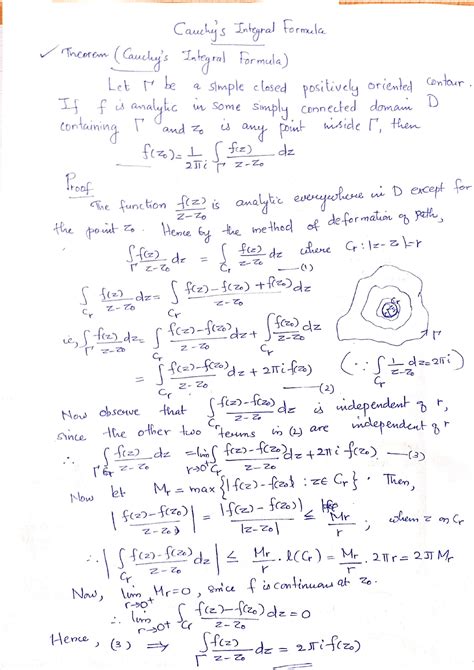 Cauchy's Integral Formula
✓ Theorem (Cauchy's Integral Formula)
Let Γ be a simple closed positively oriented contour.
If f is analytic in some simply connected domain D
containing Γ and z₀ is any point inside Γ, then
f(z₀) = 1/2πi ∫_Γ f(z)/z-z₀ dz
Proof
The function f(z)/z-z₀ is analytic everywhere in D except for
the point z₀. Hence by the method of deformation of path,
∫_Γ f(z)/z-z₀ dz = ∫_Cr f(z)/z-z₀ dz where Cr: |z-z₀|=r
—(1)
∫_Cr f(z)/z-z₀ dz = ∫_Cr f(z)-f(z₀)+f(z₀)/z-z₀ dz
Cr
i.e., ∫_Γ f(z)/z-z₀ dz = ∫_Cr f(z)-f(z₀)/z-z₀ dz + ∫_Cr f(z₀)/z-z₀ dz
Γ
= ∫_Cr f(z)-f(z₀)/z-z₀ dz + 2πi f(z₀) (∵ ∫_Cr 1/z-z₀ dz = 2πi)
—(2)
Now observe that ∫_Cr f(z)-f(z₀)/z-z₀ dz is independent of r,
since the other two terms in (2) are independent of r
∴ ∫_Γ f(z)/z-z₀ dz = lim r→0⁺ ∫_Cr f(z)-f(z₀)/z-z₀ dz + 2πi f(z₀) —(3)
Now let Mr = max {|f(z)-f(z₀)| : z∈Cr}. Then,
|f(z)-f(z₀)/z-z₀| = |f(z)-f(z₀)|/|z-z₀| ≤ Mr/r ; when z on Cr
∴ |∫_Cr f(z)-f(z₀)/z-z₀ dz| ≤ Mr/r · l(Cr) = Mr/r · 2πr = 2πMr
Now, lim r→0⁺ Mr = 0, since f is continuous at z₀.
∴ lim r→0⁺ ∫_Cr f(z)-f(z₀)/z-z₀ dz = 0
Hence, (3) ⇒ ∫_Γ f(z)/z-z₀ dz = 2πi f(z₀)